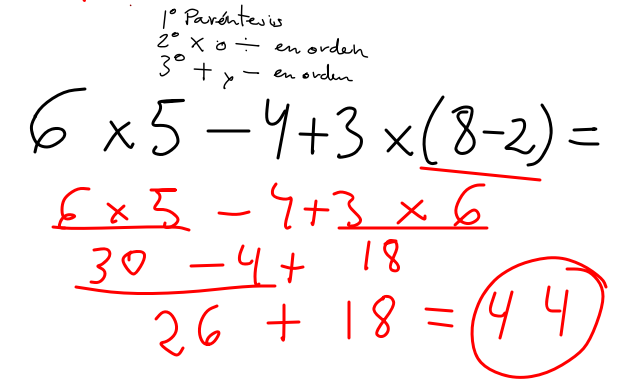 1º Paréntesis
2º × o ÷ en orden
3º + y - en orden
6 × 5 - 4 + 3 × (8 - 2) =
6 × 5 - 4 + 3 × 6
30 - 4 + 18
26 + 18 = 44